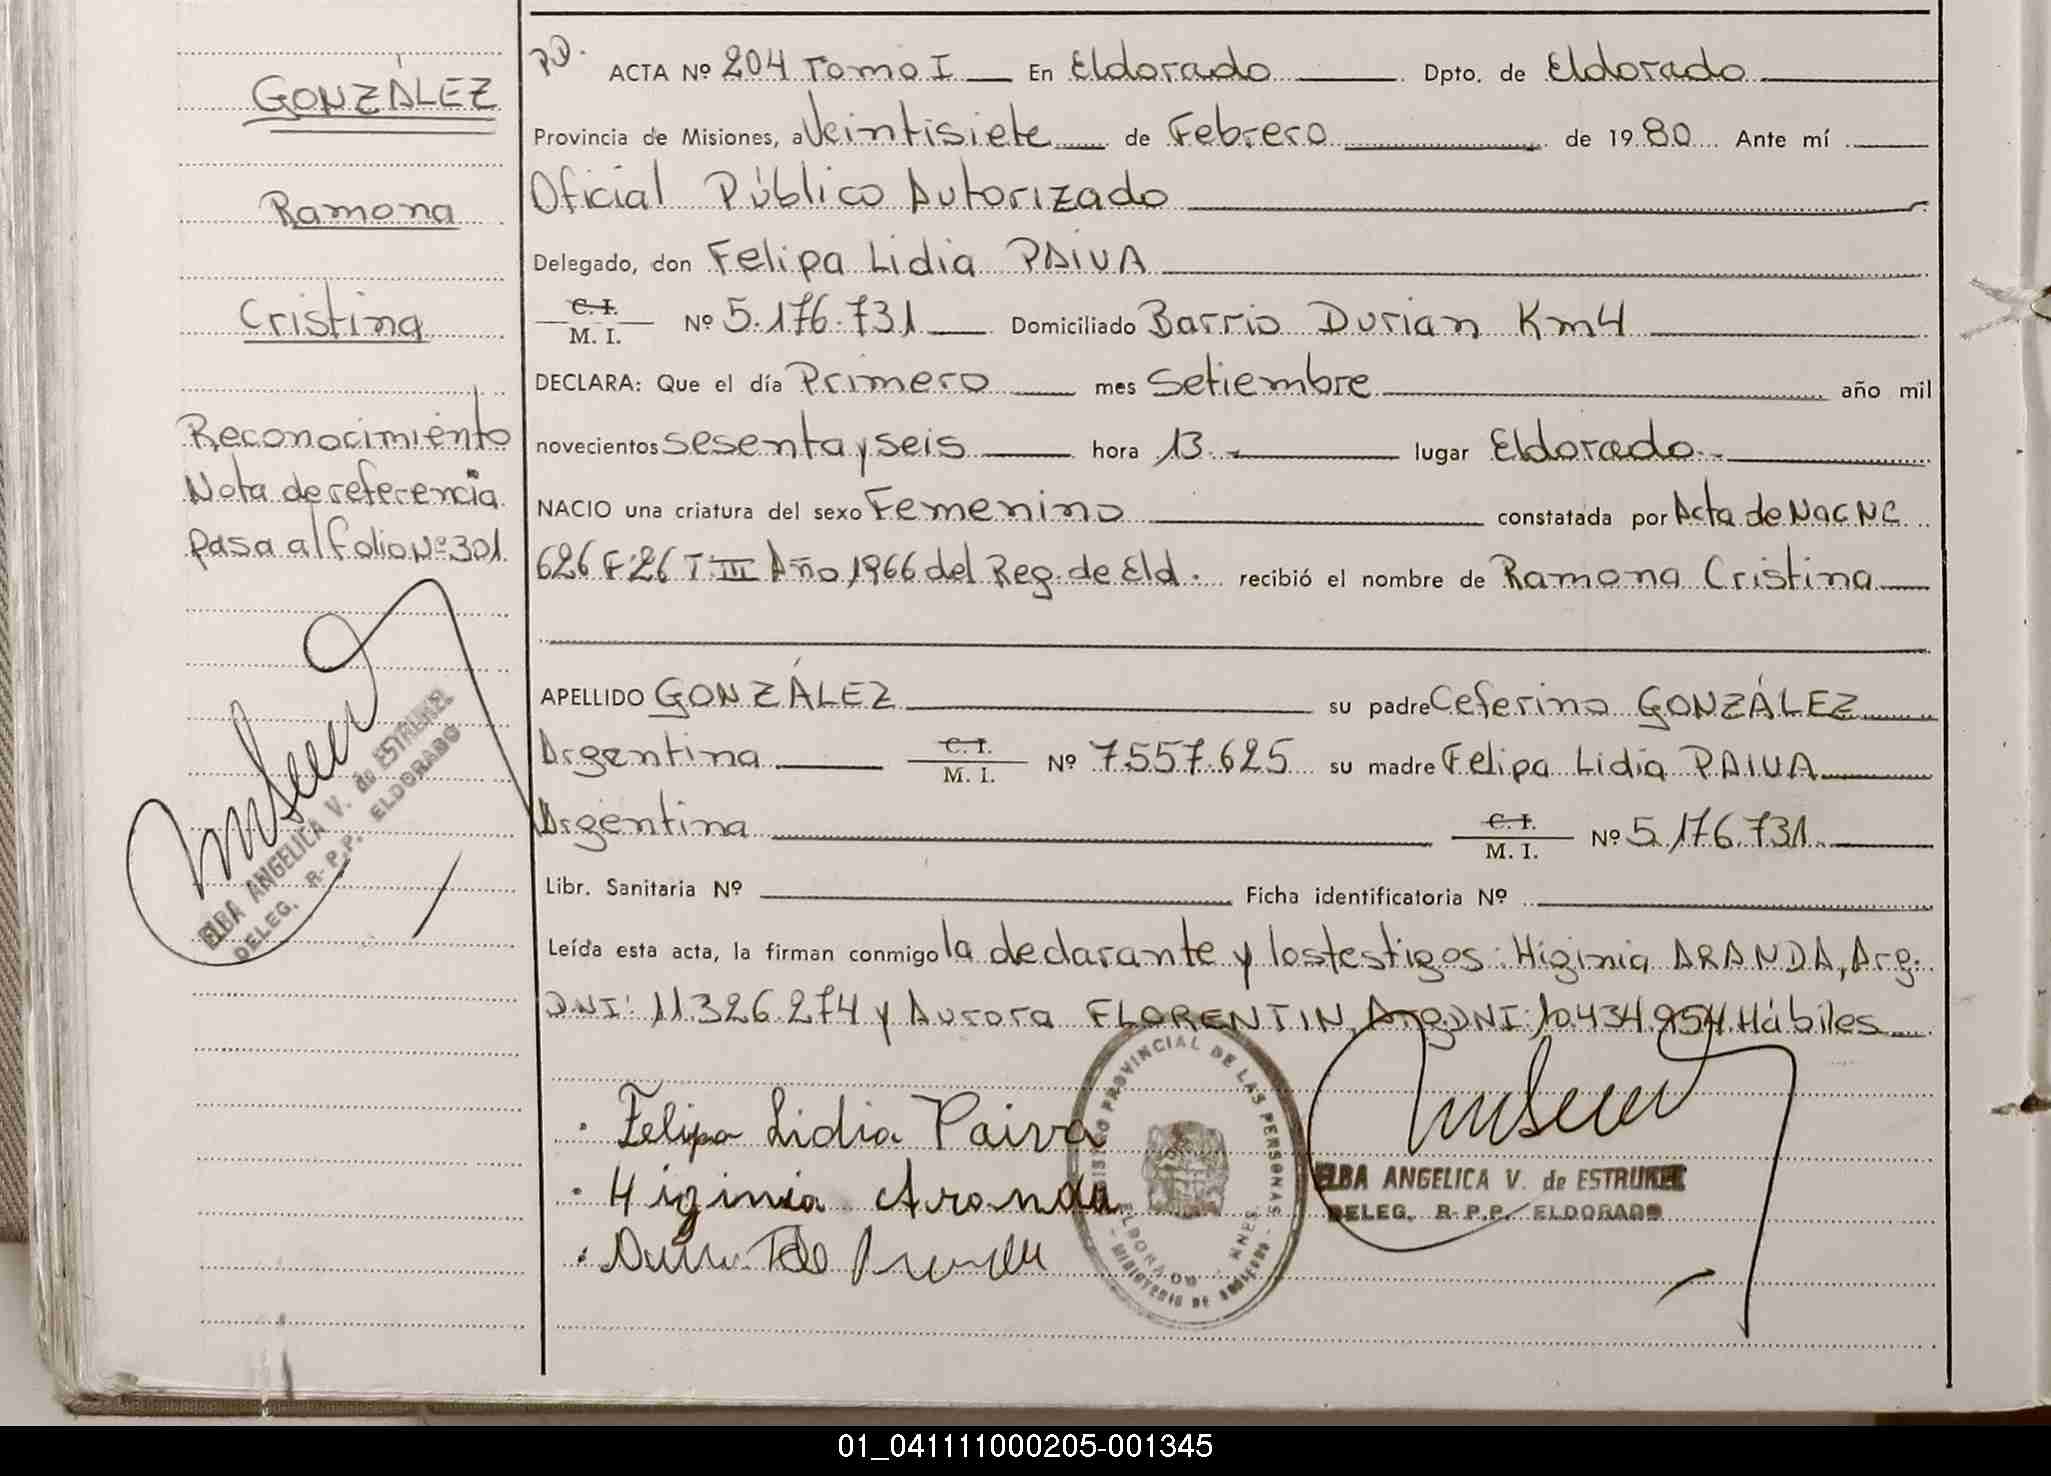 GONZÁLEZ
Ramona
Cristina
Reconocimiento
Nota de referencia
pasa al folio Nº 301
ELBA ANGELICA V. de ESTRUKEL
DELEG. R-P.P. ELDORADO
ACTA Nº 204 Tomo I En Eldorado Dpto. de Eldorado
Provincia de Misiones, a Veintisiete de Febrero de 1980 Ante mí
Oficial Público Autorizado
Delegado, don Felipa Lidia PAIVA
C. I.
M. I. Nº 5.176.731 Domiciliado Barrio Durian Km4
DECLARA: Que el día Primero mes Setiembre año mil
novecientos sesenta y seis hora 13 lugar Eldorado
NACIO una criatura del sexo Femenino constatada por Acta de Nac Nº
626 F:26 T:III Año 1966 del Reg. de Eld. recibió el nombre de Ramona Cristina
APELLIDO GONZÁLEZ su padre Ceferino GONZÁLEZ
Argentina C. I. M. I. Nº 7.557.625 su madre Felipa Lidia PAIVA
Argentina C. I. M. I. Nº 5.176.731
Libr. Sanitaria Nº Ficha identificatoria Nº
Leída esta acta, la firman conmigo la declarante y los testigos: Higinia ARANDA, Arg.
DNI: 11.326.274 y Aurora FLORENTIN, Arg. DNI: 10.434.954 Hábiles
Felipa Lidia Paiva
Higinia Aranda
REGISTRO PROVINCIAL DE LAS PERSONAS
ELDORADO MNES.
MINISTERIO DE GOBIERNO
ELBA ANGELICA V. de ESTRUKEL
DELEG. R-P.P. ELDORADO
01_041111000205-001345